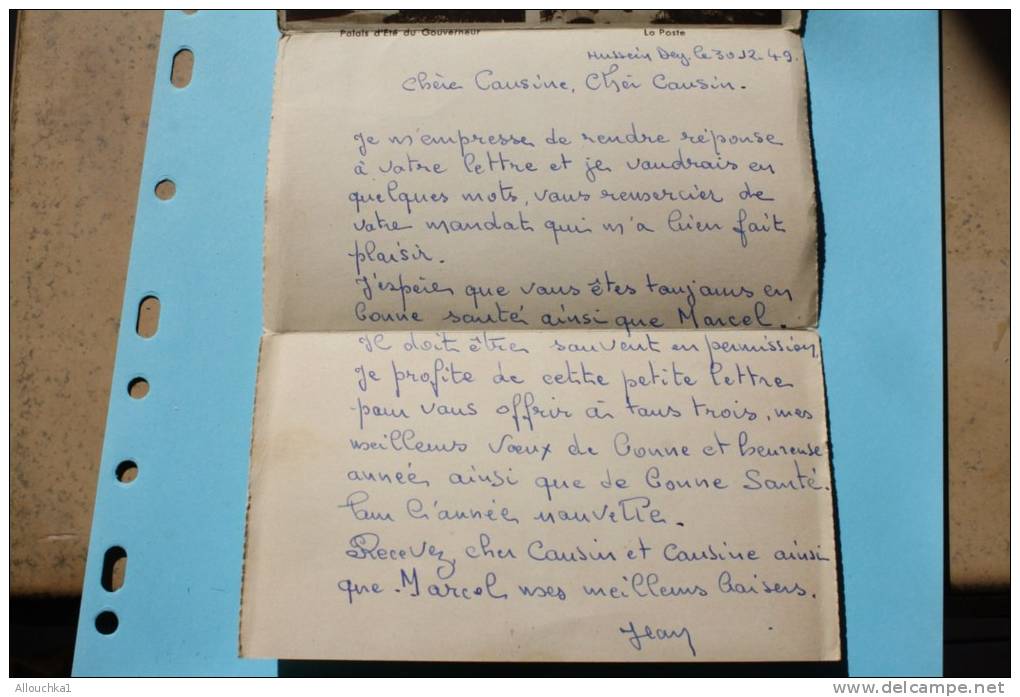 Palais d'Été du Gouverneur La Poste
Hussein Dey le 30.12.49.
Chère Cousine, Cher Cousin.
Je m'empresse de rendre réponse
à votre lettre et je voudrais en
quelques mots, vous remercier de
votre mandat qui m'a bien fait
plaisir.
J'espère que vous êtes toujours en
bonne santé ainsi que Marcel.
Il doit être souvent en permission,
Je profite de cette petite lettre
pour vous offrir à tous trois, mes
meilleurs vœux de bonne et heureuse
année ainsi que de bonne Santé.
Pour l'année nouvelle.
Recevez, cher Cousin et Cousine ainsi
que Marcel mes meilleurs baisers.
Jean
Allouchka1
http://www.delcampe.net